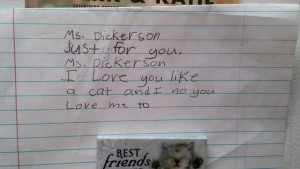 & KATIE
Ms. Dickerson
Just for you.
Ms. Dickerson
I Love you like
a cat and I no you
Love me to
BEST
friends